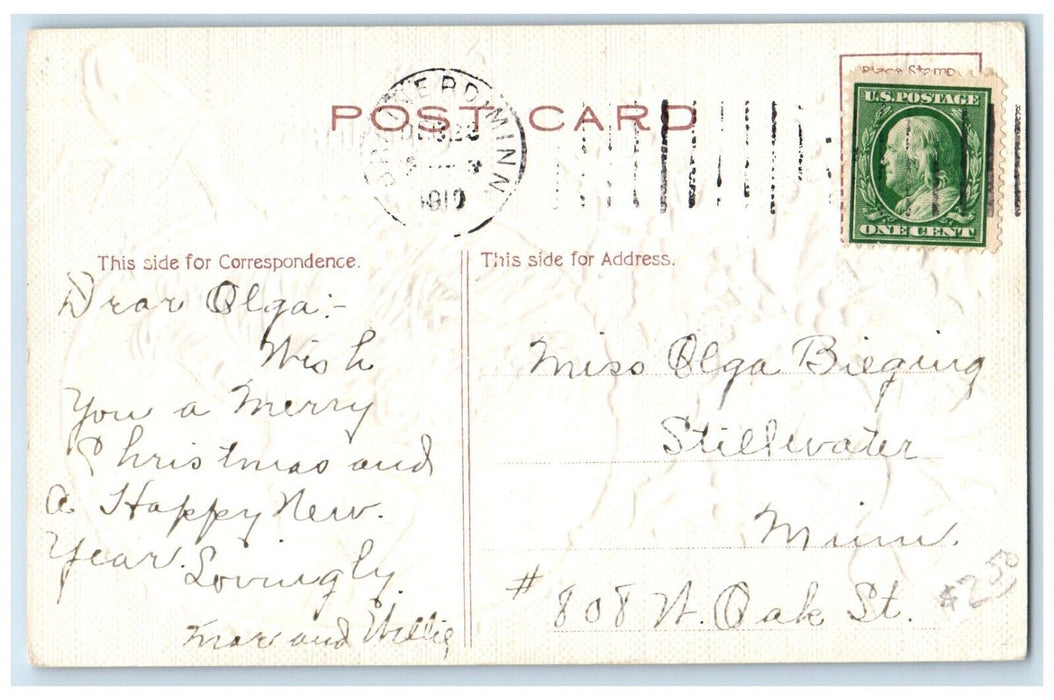 POST CARD
BRAINERD MINN
1910
Place Stamp
U.S. POSTAGE
ONE CENT
This side for Correspondence.
This side for Address.
Dear Olga:-
Wish
You a Merry
Christmas and
a Happy New.
Year. Lovingly
and Willie
Miss Olga Bieging
Stillwater
Minn.
# 808 W. Oak St.